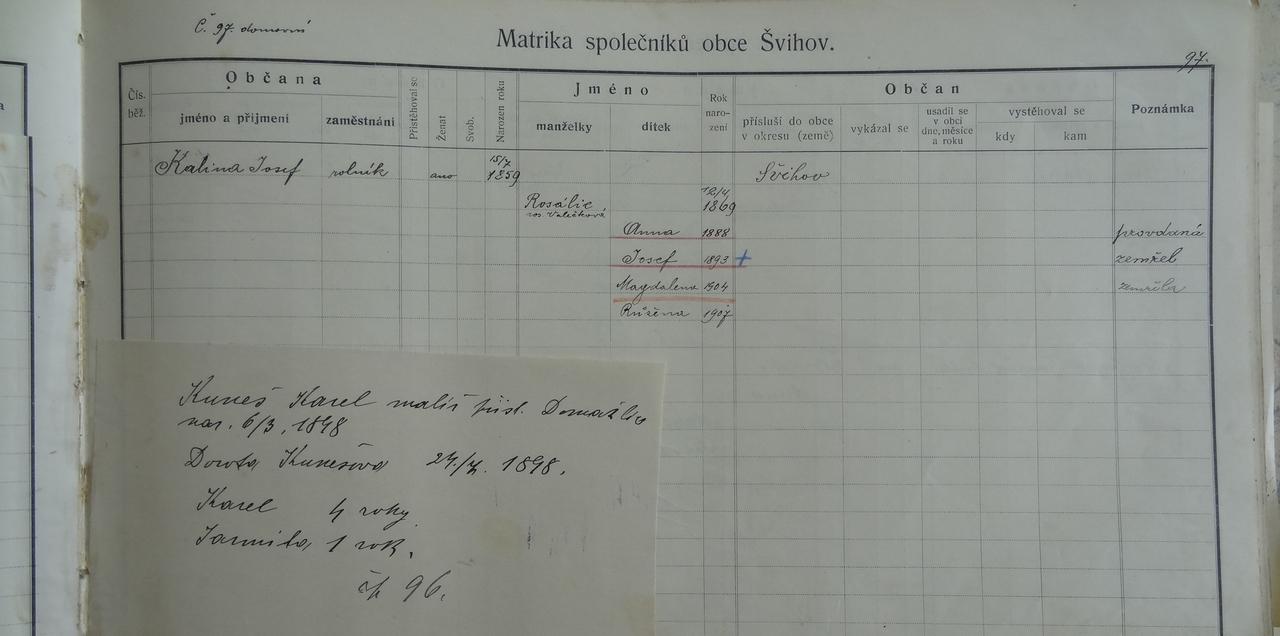 Č. 97. domovní
Matrika společníků obce Švihov.
97.
Čís. běž.
Občana
jméno a přijmení
zaměstnání
Přistěhoval se
Ženat
Svob.
Narozen roku
Jméno
manželky
dítek
Rok naro- zení
Občan
přísluší do obce v okresu (země)
vykázal se
usadil se v obci dne, měsíce a roku
vystěhoval se
kdy
kam
Poznámka
Kalina Josef rolník ano 15/7 1859 Švihov
Rosálie 12/4 1869
roz. Valečková
Anna 1888 provdaná
Josef 1893 + zemřel
Magdalena 1904 zemřela
Růžena 1907
Kuneš Karel malíř přísl. Domažlice
nar. 6/3, 1898
Dorota Kunešova 1898.
Karel 4 roky
Jarmila 1 rok.
čp 96.